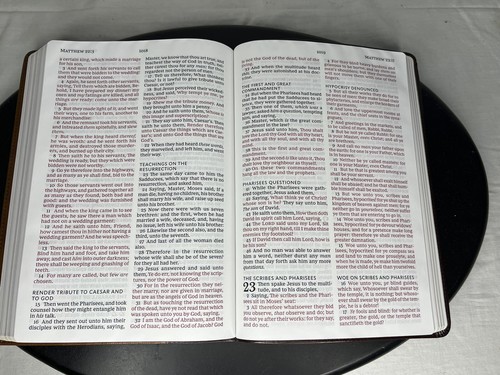 MATTHEW 22:2
1018
a certain king, which made a marriage
for his son,
3 And sent forth his servants to call
them that were bidden to the wedding:
and they would not come.
4 Again, he sent forth other servants,
saying, Tell them which are bidden, Behold,
I have prepared my dinner: my
oxen and my fatlings are killed, and all
things are ready: come unto the marriage.
5 But they made light of it, and went
their ways, one to his farm, another to
his merchandise:
6 And the remnant took his servants,
and intreated them spitefully, and slew
them.
7 But when the king heard thereof,
he was wroth: and he sent forth his
armies, and destroyed those murderers,
and burned up their city.
8 Then saith he to his servants, The
wedding is ready, but they which were
bidden were not worthy.
9 Go ye therefore into the highways,
and as many as ye shall find, bid to the
marriage.
10 So those servants went out into the
highways, and gathered together all
as many as they found, both bad and
good: and the wedding was furnished
with guests.
11 And when the king came in to see
the guests, he saw there a man which
had not on a wedding garment:
12 And he saith unto him, Friend,
how camest thou in hither not having a
wedding garment? And he was speechless.
13 Then said the king to the servants,
Bind him hand and foot, and take him
away, and cast him into outer darkness;
there shall be weeping and gnashing of
teeth.
14 For many are called, but few are
chosen.
RENDER TRIBUTE TO CAESAR AND
TO GOD
15 Then went the Pharisees, and took
counsel how they might entangle him
in his talk.
16 And they sent out unto him their
disciples with the Herodians, saying,
Master, we know that thou art true, and
teachest the way of God in truth, neither
carest thou for any man: for thou
regardest not the person of men.
17 Tell us therefore, What thinkest
thou? Is it lawful to give tribute unto
Caesar, or not?
18 But Jesus perceived their wickedness,
and said, Why tempt ye me, ye
hypocrites?
19 Shew me the tribute money. And
they brought unto him a penny.
20 And he saith unto them, Whose is
this image and superscription?
21 They say unto him, Caesar's. Then
saith he unto them, Render therefore
unto Caesar the things which are Caesar's;
and unto God the things that are
God's.
22 When they had heard these words,
they marvelled, and left him, and went
their way.
TEACHINGS ON THE
RESURRECTION
23 The same day came to him the
Sadducees, which say that there is no
resurrection, and asked him,
24 Saying, Master, Moses said, If a
man die, having no children, his brother
shall marry his wife, and raise up seed
unto his brother.
25 Now there were with us seven
brethren: and the first, when he had
married a wife, deceased, and, having
no issue, left his wife unto his brother:
26 Likewise the second also, and the
third, unto the seventh.
27 And last of all the woman died
also.
28 Therefore in the resurrection
whose wife shall she be of the seven?
for they all had her.
29 Jesus answered and said unto
them, Ye do err, not knowing the scriptures,
nor the power of God.
30 For in the resurrection they neither
marry, nor are given in marriage,
but are as the angels of God in heaven.
31 But as touching the resurrection
of the dead, have ye not read that which
was spoken unto you by God, saying,
32 I am the God of Abraham, and the
God of Isaac, and the God of Jacob? God
is not the God of the dead, but of the
living.
33 And when the multitude heard
this, they were astonished at his doctrine.
THE FIRST AND GREAT
COMMANDMENT
34 But when the Pharisees had heard
that he had put the Sadducees to silence,
they were gathered together.
35 Then one of them, which was a
lawyer, asked him a question, tempting
him, and saying,
36 Master, which is the great commandment
in the law?
37 Jesus said unto him, Thou shalt
love the Lord thy God with all thy heart,
and with all thy soul, and with all thy
mind.
38 This is the first and great
commandment.
39 And the second is like unto it, Thou
shalt love thy neighbour as thyself.
40 On these two commandments
hang all the law and the prophets.
PHARISEES QUESTIONED
41 While the Pharisees were gathered
together, Jesus asked them,
42 Saying, What think ye of Christ?
whose son is he? They say unto him,
The son of David.
43 He saith unto them, How then doth
David in spirit call him Lord, saying,
44 The LORD said unto my Lord, Sit
thou on my right hand, till I make thine
enemies thy footstool?
45 If David then call him Lord, how is
he his son?
46 And no man was able to answer
him a word, neither durst any man
from that day forth ask him any more
questions.
THE SCRIBES AND PHARISEES
23 Then spake Jesus to the multitude,
and to his disciples,
2 Saying, The scribes and the Pharisees
sit in Moses' seat:
3 All therefore whatsoever they bid
you observe, that observe and do; but
do not ye after their works: for they say,
and do not.
1019
MATTHEW 23:17
4 For they bind heavy burdens and
HYPOCRISY DENOUNCED
5 But all their works they do for
WOE ON SCRIBES AND PHARISEES
16 Woe unto you, ye blind guides,
which say, Whosoever shall swear by
the temple, it is nothing; but whosoever
shall swear by the gold of the temple,
he is a debtor!
17 Ye fools and blind: for whether is
greater, the gold, or the temple that
sanctifieth the gold?